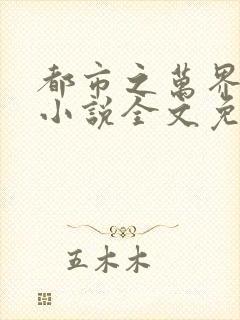 都市之萬界
小說全文免
五木木